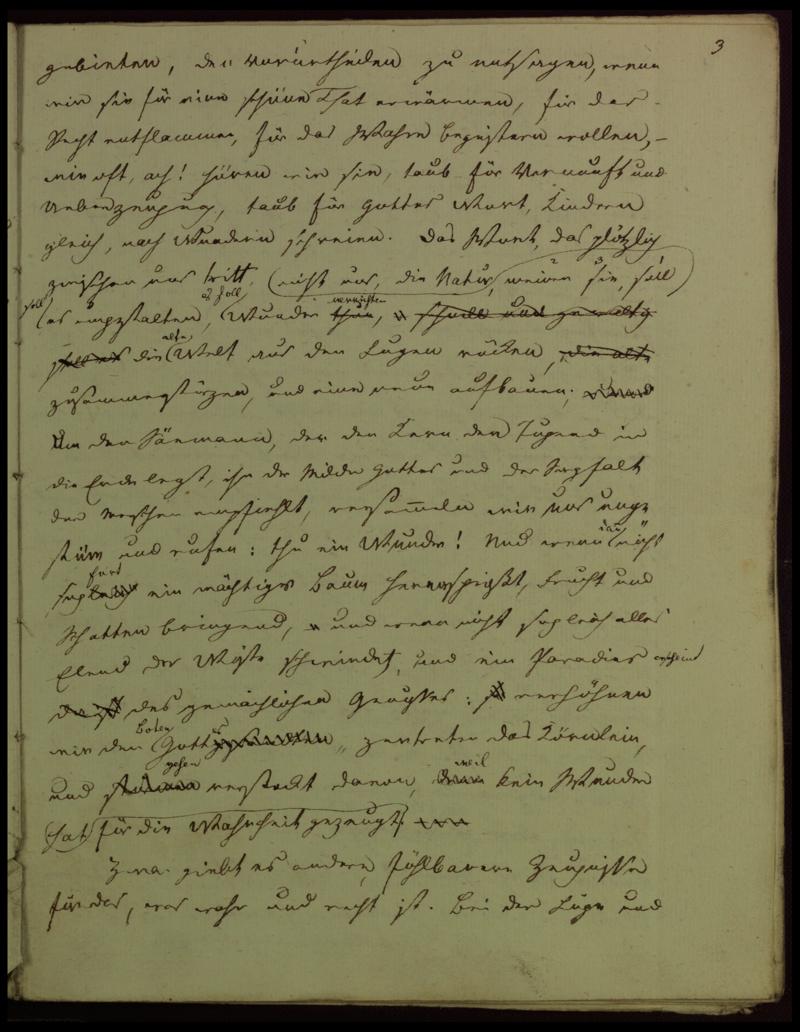 3
gebieten, den Vorurtheilen zu entsagen, wenn
wir sie für eine schöne That erwärmen, für das
Recht entflammen, für das Wahre begeistern wollen, –
wie oft, ach! hören wir sie, taub für Vernunft und
Ueberzeugung, taub für Gottes Wort, Kindern
gleich, nach Wundern schreien. Das Wort, das plötzlich
zwischen uns tritt, (nicht uns, die Natur, meinen sie, soll)
soll es umgestalten, es soll Wunder verrichten thun, schnell und gewaltig
soll es die alte Welt aus den Fugen rücken, die alte
zusammenstürzen, und eine neue aufbauen;
Um den Säemann, der den Kern der Tugend in
die Erde legt, ihn der Milde Gottes und der Sorgfalt
der Menschen empfiehlt, versammeln wir uns unge-
stüm und rufen: thu ein Wunder! Und wenn nun nicht
sofort ein mächtiger Baum hervorsprießt, Frucht und
Schatten bringend, und wenn nicht sogleich alles
Elend der Wüste schwindet, und ein Paradies erscheint
des gemächlichen Genusses: so verhöhnen
wir den Boten Gottes, zertreten das Körnlein,
und gehen verstockt davon, weil kein Wunder
hat für die Wahrheit gezeugt.
Zwar giebt es andere, fühlbarere Zeugnisse
für das, was wahr und recht ist. Bei der Lüge und